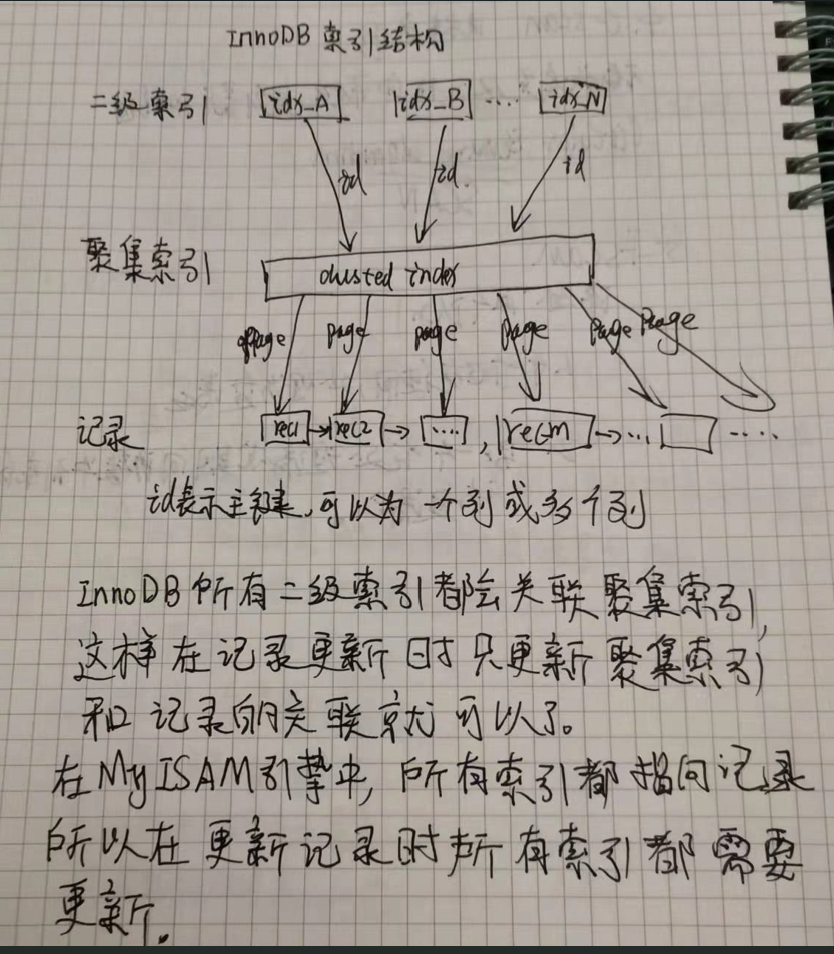 InnoDB 索引结构
二级索引 idx_A idx_B .... idx_N
id id. id
聚集索引
clusted index
page page page page page page
记录 rec1 rec2 .... , recm ... ....
id表示主键,可以为一个列或多个列
InnoDB所有二级索引都会关联聚集索引,
这样在记录更新时只更新聚集索引
和记录的关联就可以了。
在MyISAM引擎中,所有索引都指向记录
所以在更新记录时所有索引都需要
更新.